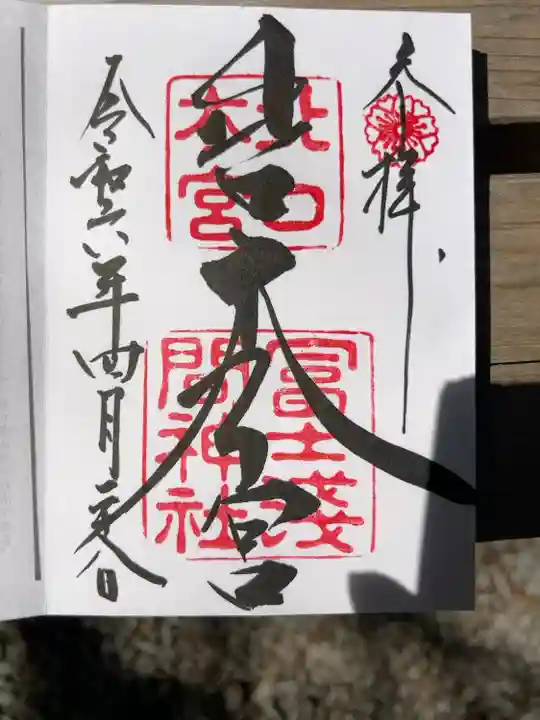 奉拝
北口本宮
北口
本宮
冨士淺
間神社
令和六年四月日